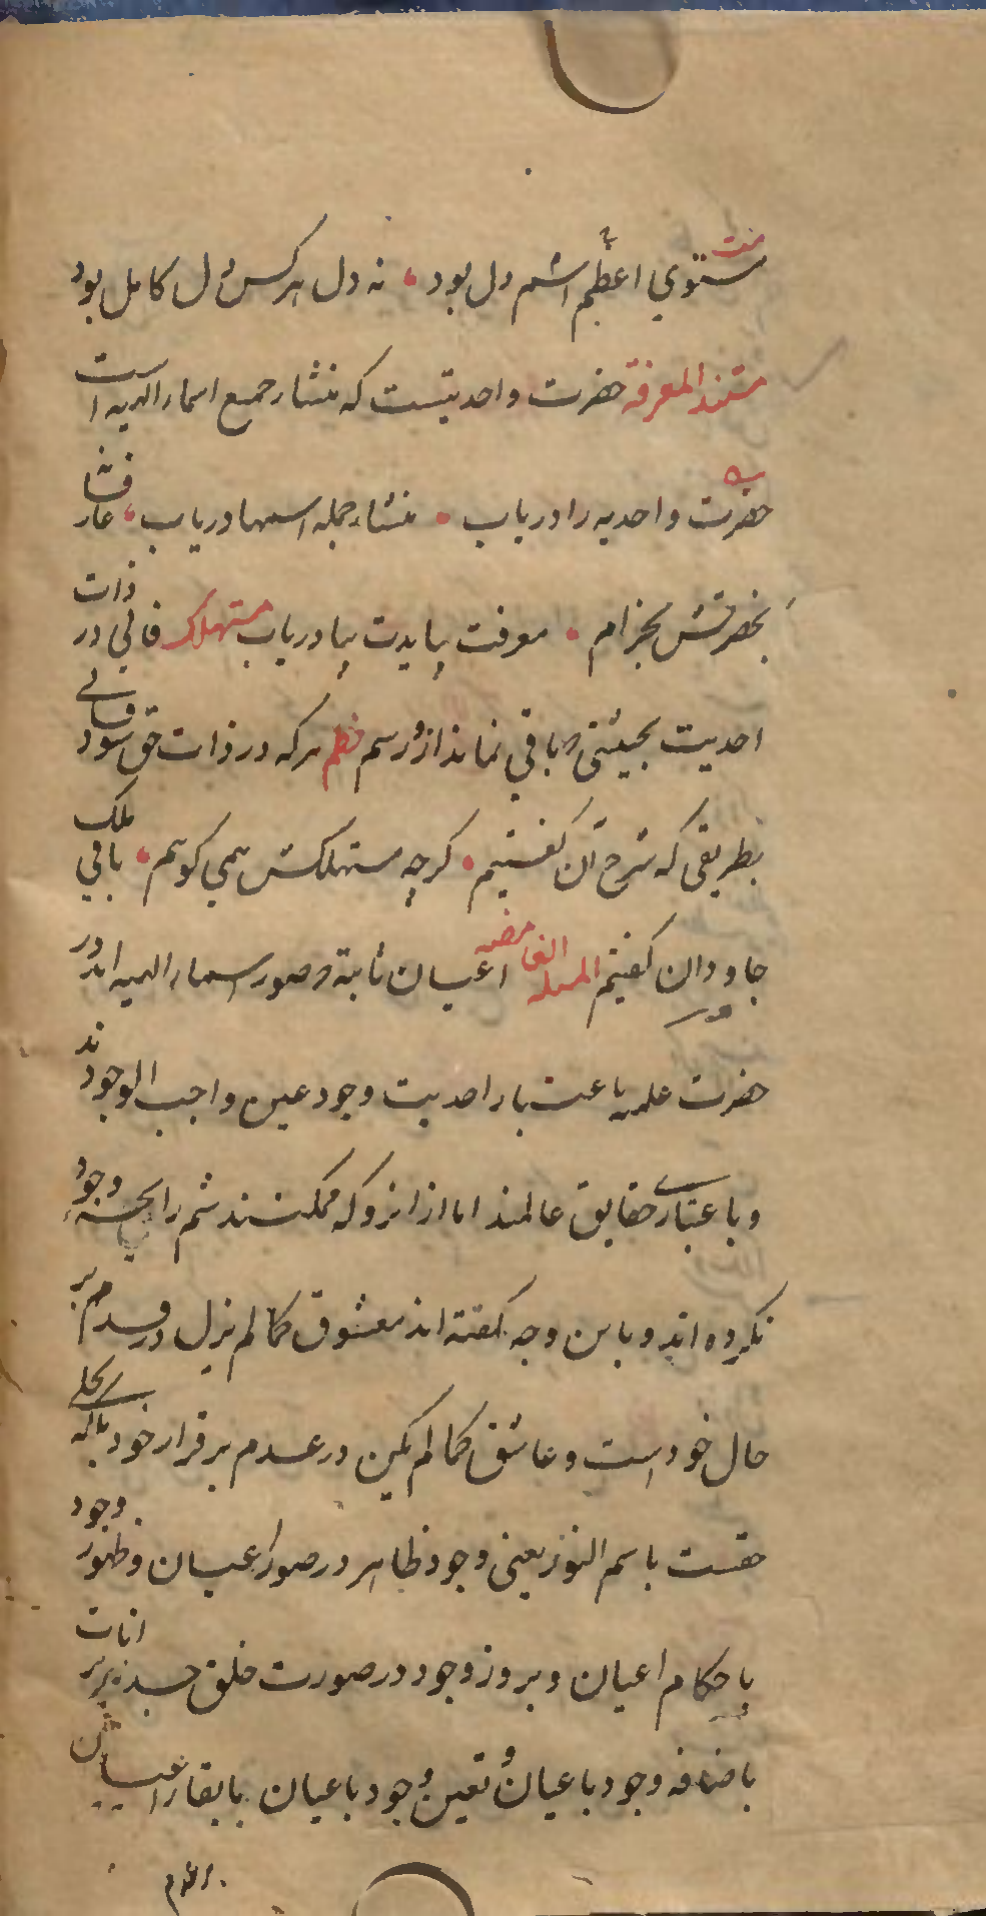 بیت مستوی اعظم اسم دل بود ، نه دل هر کس دل کامل بود
مستند المعرفة حضرت واحدیتست که منشاء جمیع اسماء الهیه است
بیت حضرت واحدیه را دریاب ، منشاء جمله اسمها دریاب ، عارفانه
بحضرتش بخرام ، معرفت بایدت بیا دریاب مستهلک فانی در ذات
احدیت بحیثتی که باقی نماند ازو رسم نظم هر که در ذات حق شود فانی
بطریقی که شرح آن گفتیم ، گرچه مستهلکش همی گوئیم ، باقی ملک
جاودان گفتیم المسئله الغامضه اعیان ثابته و صور اسماء الهیه اند در
حضرت علمیه باعتبار احدیت وجود عین واجب الوجودند
و باعتباری حقایق عالمند اما از انرو که ممکنند شم رایحه وجود
نکرده اند و باین وجه گفته اند معشوق کما لم یزل در قدم بر
حال خود است و عاشق کما لم یکن در عدم برقرار خود بلکه تجلی
حقست باسم النور یعنی وجود ظاهر در صور اعیان و ظهور وجود
باحکام اعیان و بروز وجود در صورت خلق جدید بر انات
باضافه وجود باعیان و تعین وجود باعیان بابقاء اعیان شان